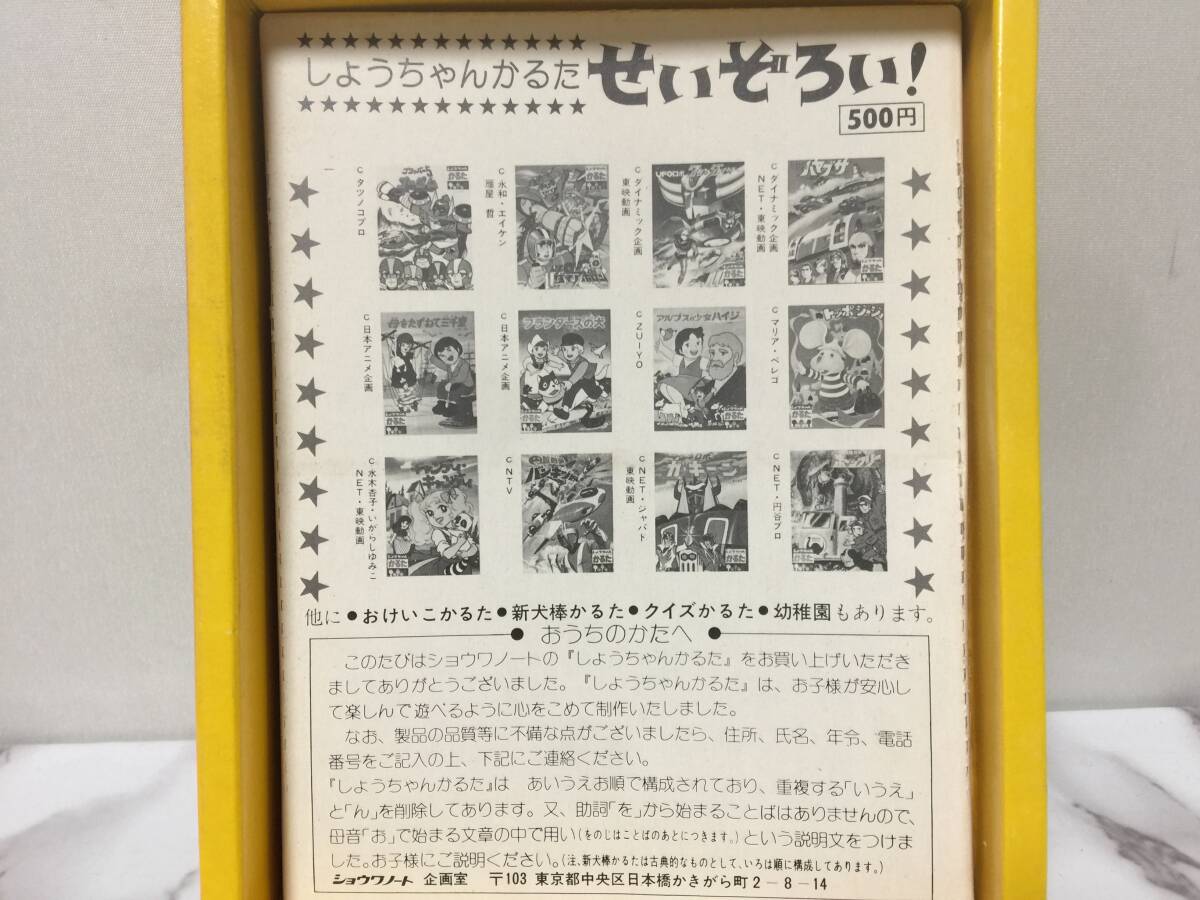 しょうちゃんかるた
せいぞろい!
500円
C タツノコプロ
C 永和・エイケン
雁屋 哲
かるた
C ダイナミック企画
東映動画
UFOロボ
C ダイナミック企画
NET・東映動画
かるた
C 日本アニメ企画
母をたずねて三千里
かるた
C 日本アニメ企画
フランダースの犬
かるた
C ZUIYO
アルプスの少女ハイジ
かるた
C マリア・ペレゴ
トッポ・ジージョ
かるた
C 水木杏子・いがらしゆみこ
NET・東映動画
キャンディ・キャンディ
かるた
C NTV
かるた
C NET・ジャパド
東映動画
ガキーン
かるた
C NET・円谷プロ
かるた
他に●おけいこかるた●新犬棒かるた●クイズかるた●幼稚園もあります。
●おうちのかたへ●
このたびはショウワノートの『しょうちゃんかるた』をお買い上げいただき
ましてありがとうございました。『しょうちゃんかるた』は、お子様が安心し
て楽しんで遊べるように心をこめて制作いたしました。
なお、製品の品質等に不備な点がございましたら、住所、氏名、年令、電話
番号をご記入の上、下記にご連絡ください。
『しょうちゃんかるた』は あいうえお順で構成されており、重複する「いうえ」
と「ん」を削除してあります。又、助詞「を」から始まることばはありませんので、
母音「お」で始まる文章の中で用い(をのじはことばのあとにつきます。)という説明文をつけまし
た。お子様にご説明ください。(注、新犬棒かるたは古典的なものとして、いろは順に構成してあります。)
ショウワノート 企画室 〒103 東京都中央区日本橋かきがら町2-8-14